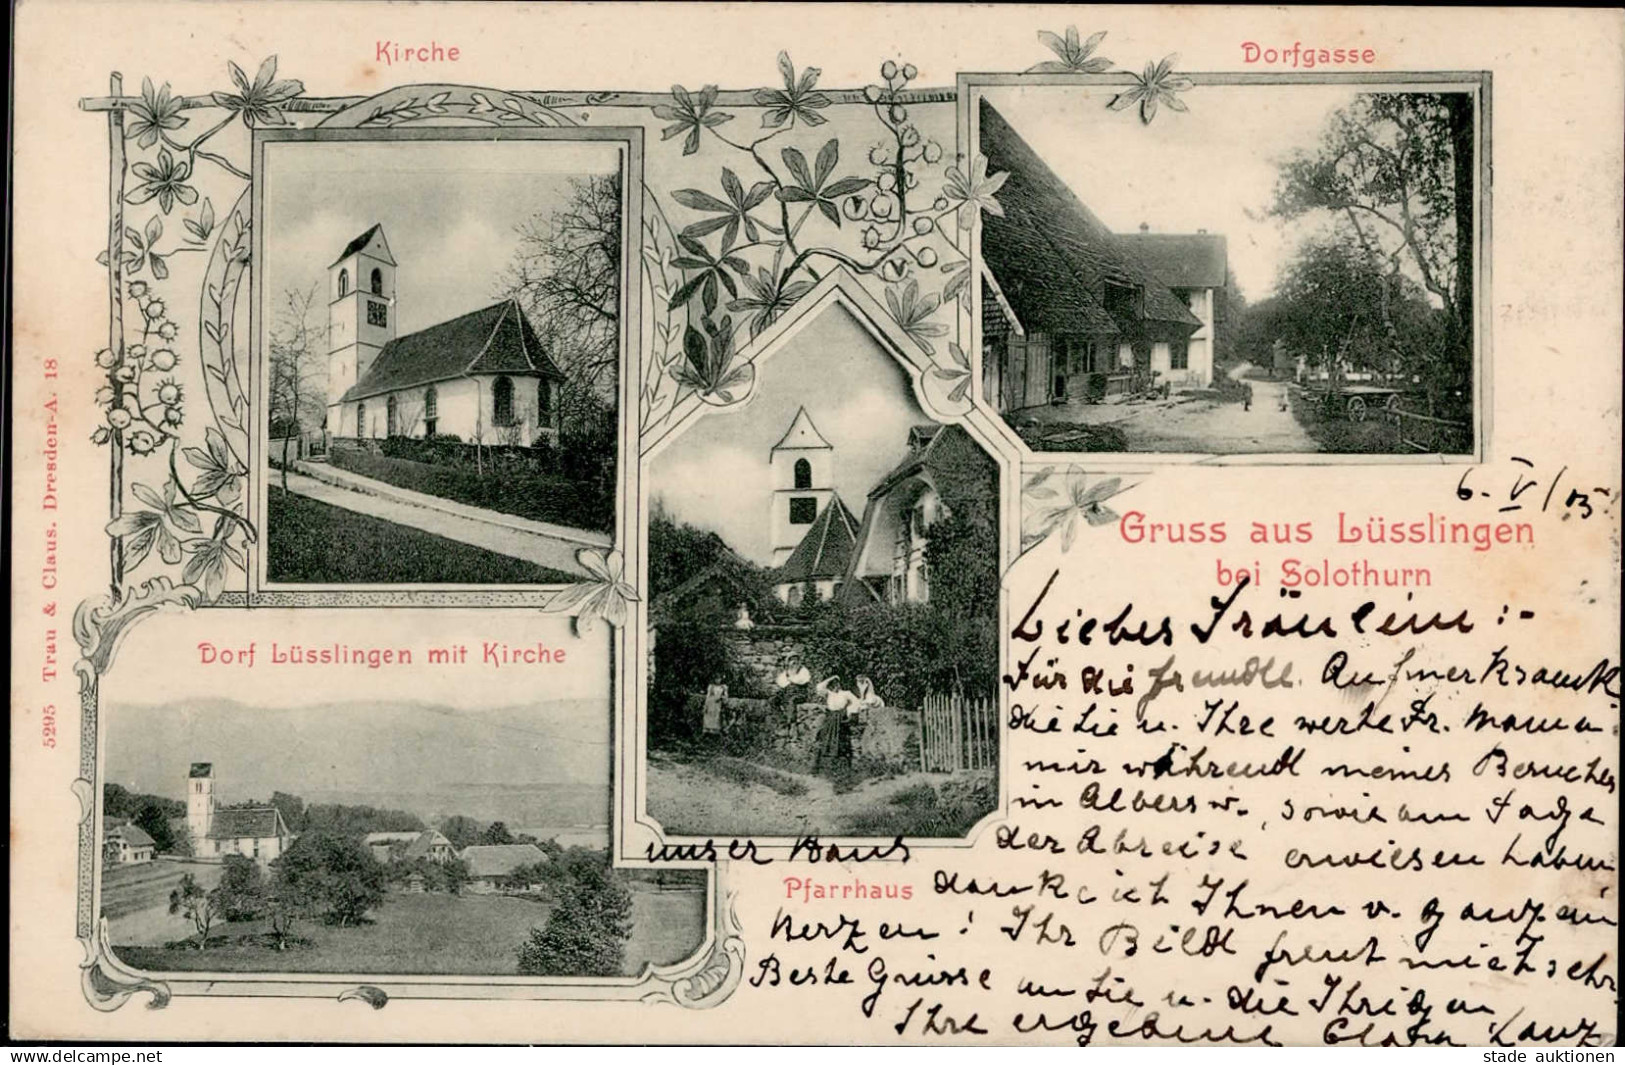 Kirche
Dorfgasse
5295 Trau & Claus. Dresden-A. 18
6. V/05
Gruss aus Lüsslingen
bei Solothurn
Dorf Lüsslingen mit Kirche
Liebes Fräulein :-
Für die freundl. Aufmerksamk
die Sie u. Ihre werte Fr. Mama
mir während meines Besuches
in Albersw., sowie am Tage
der Abreise erwiesen haben
unser Haus
Pfarrhaus
danke ich Ihnen v. ganzem
Herzen! Ihr Bild freut mich sehr.
Beste Grüsse an Sie u. die Ihrigen
Ihre ergebene
www.delcampe.net
stade auktionen